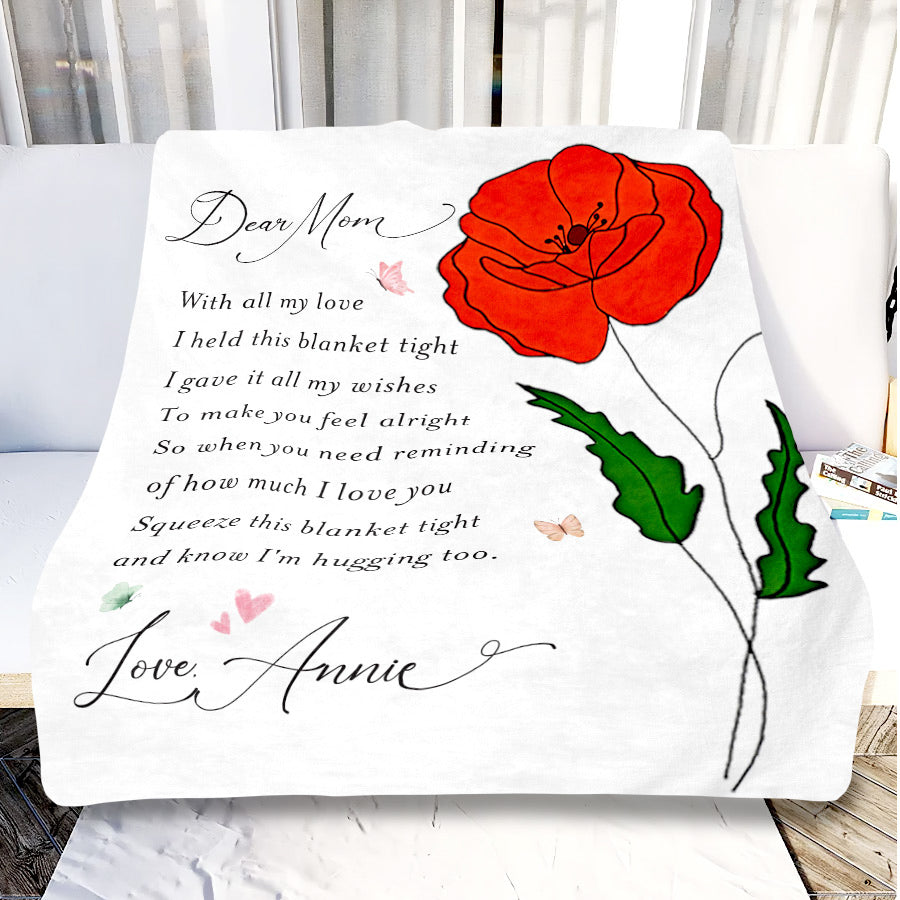 Dear Mom
With all my love
I held this blanket tight
I gave it all my wishes
To make you feel alright
So when you need reminding
of how much I love you
Squeeze this blanket tight
and know I'm hugging too.
Love, Annie
The
The
Paul